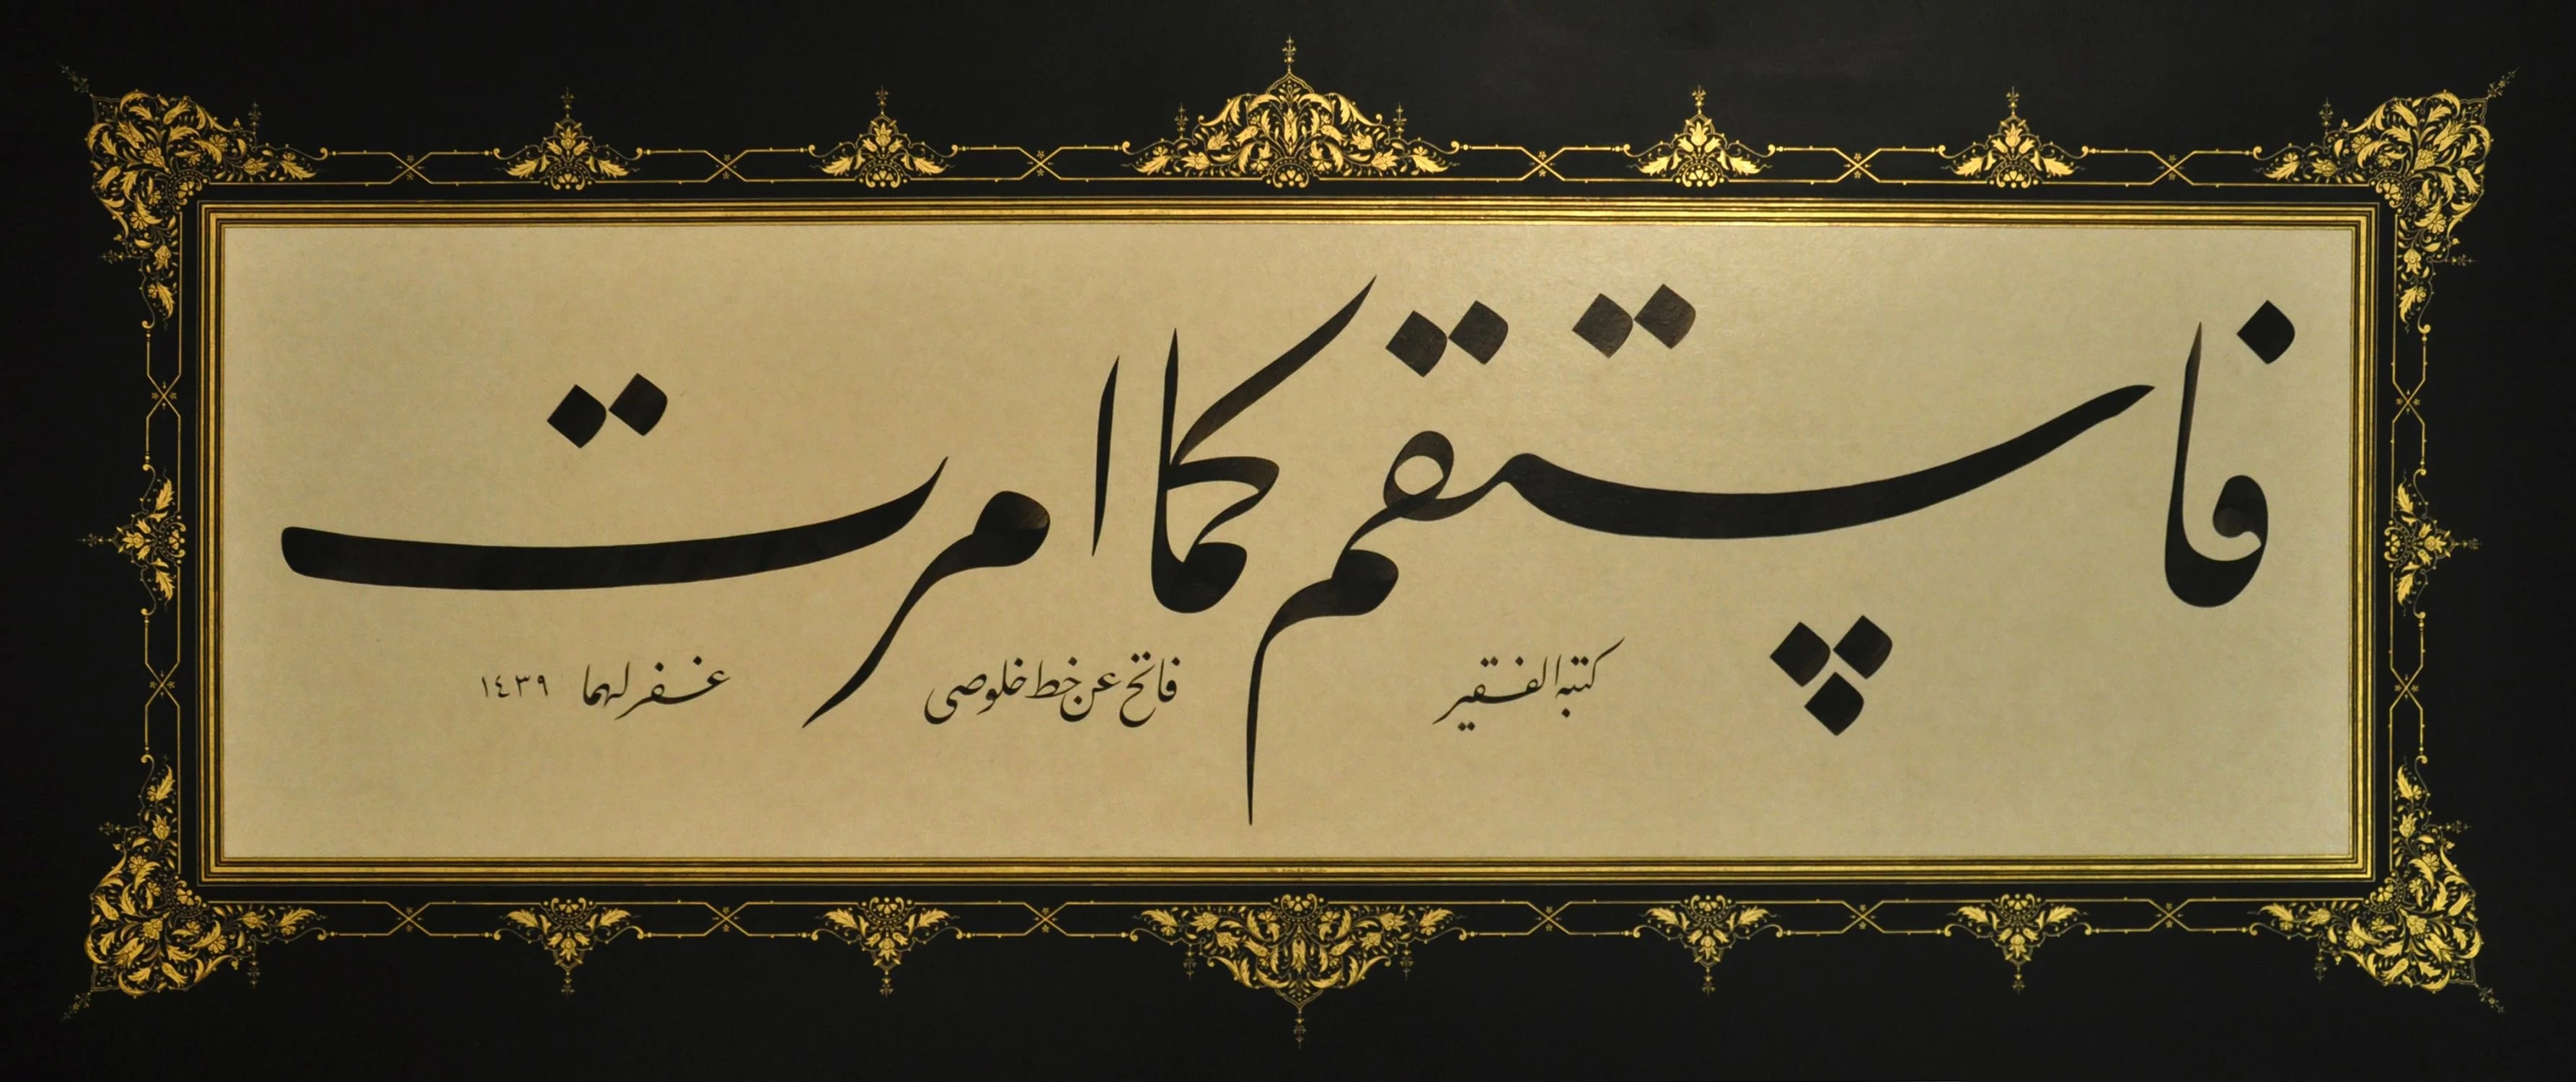 فاستقم كما امرت
كتبه الفقير فاتح عن خط خلوصی غفر لهما ١٤٣٩